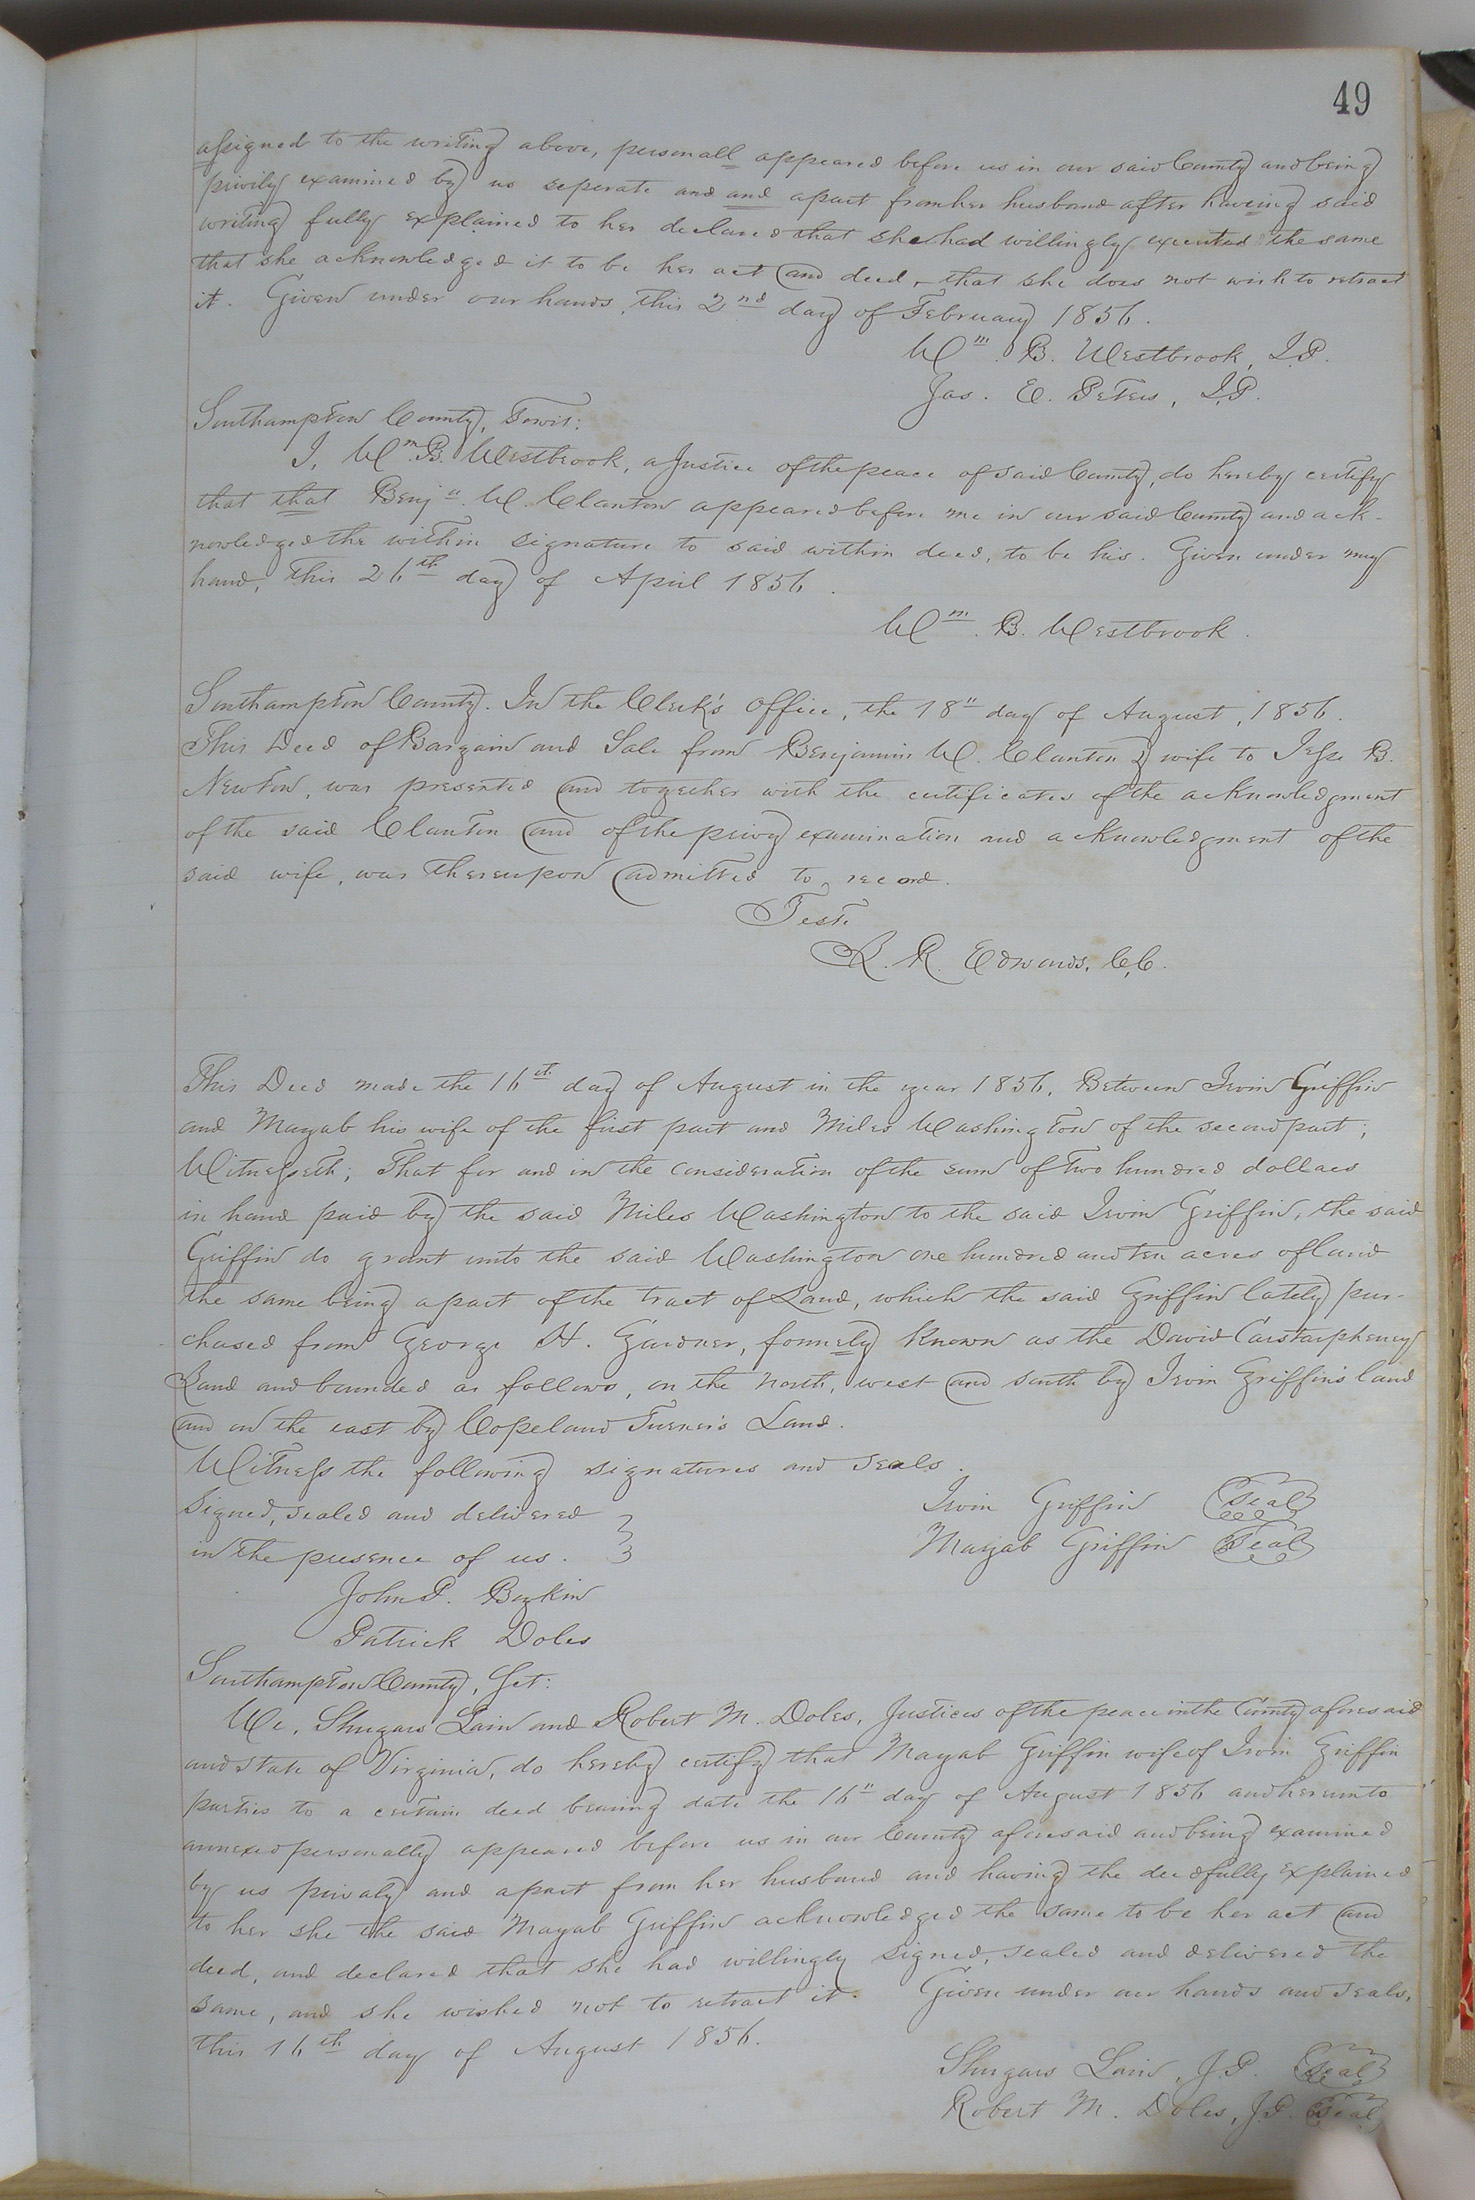 49
assigned to the writing above, personall appeared before us in our said County and being
privily examined by us seperate and and apart from her husband after haveing said
writing fully explained to her declared that she had willingly executed the same
that she acknowledged it to be her act and deed, that she does not wish to retract
it. Given under our hands, this 2nd day of February 1856.
Wm. B. Westbrook, J.P.
Jas. E. Peters, J.P.
Southampton County, Towit:
I, Wm. B. Westbrook, a Justice of the peace of said County, do hereby certify
that that Benja. W. Clanton appeared before me in our said County and ack-
nowledged the within signature to said within deed, to be his. Given under my
hand, this 26th day of April 1856.
Wm. B. Westbrook.
Southampton County. In the Clerk's Office, the 18" day of August, 1856.
This Deed of Bargain and Sale from Benjamin W. Clanton & wife to Jesse B.
Newton, was presented and together with the certificates of the acknowledgment
of the said Clanton and of the privy examination and acknowledgment of the
said wife, was thereupon admitted to record.
Teste
L. R. Edwards, C.C.
This Deed made the 16th day of August in the year 1856, Between Irvin Griffin
and Mayab his wife of the first part and Miles Washington of the second part;
Witnesseth; That for and in the consideration of the sum of two hundred dollars
in hand paid by the said Miles Washington to the said Irvin Griffin, the said
Griffin do grant unto the said Washington one hundred and ten acres of land
the same being a part of the tract of Land, which the said Griffin lately pur-
chased from George H. Gardner, formely known as the David Carstarpheney
Land and bounded as follows, on the north, west and south by Irvin Griffin's land
and on the east by Copeland Turner's Land.
Witness the following signatures and seals.
Signed, sealed and delivered
in the presence of us.
Irvin Griffin Seal
Mayab Griffin Seal
John P.
Patrick Doles
Southampton County, Sct:
We, Shugars Lain and Robert M. Doles, Justices of the peace in the County aforesaid
and State of Virginia, do hereby certify that Mayab Griffin wife of Irvin Griffin
parties to a certain deed bearing date the 16" day of August 1856 and hereunto
annexed personally appeared before us in our County aforesaid and being examined
by us privaty and apart from her husband and having the deed fully explained
to her she the said Mayab Griffin acknowledged the same to be her act and
deed, and declared that she had willingly signed, sealed and delivered the
same, and she wished not to retract it. Given under our hands and seals,
this 16th day of August 1856.
Shugars Lain, J.P. Seal
Robert M. Doles, J.P. Seal